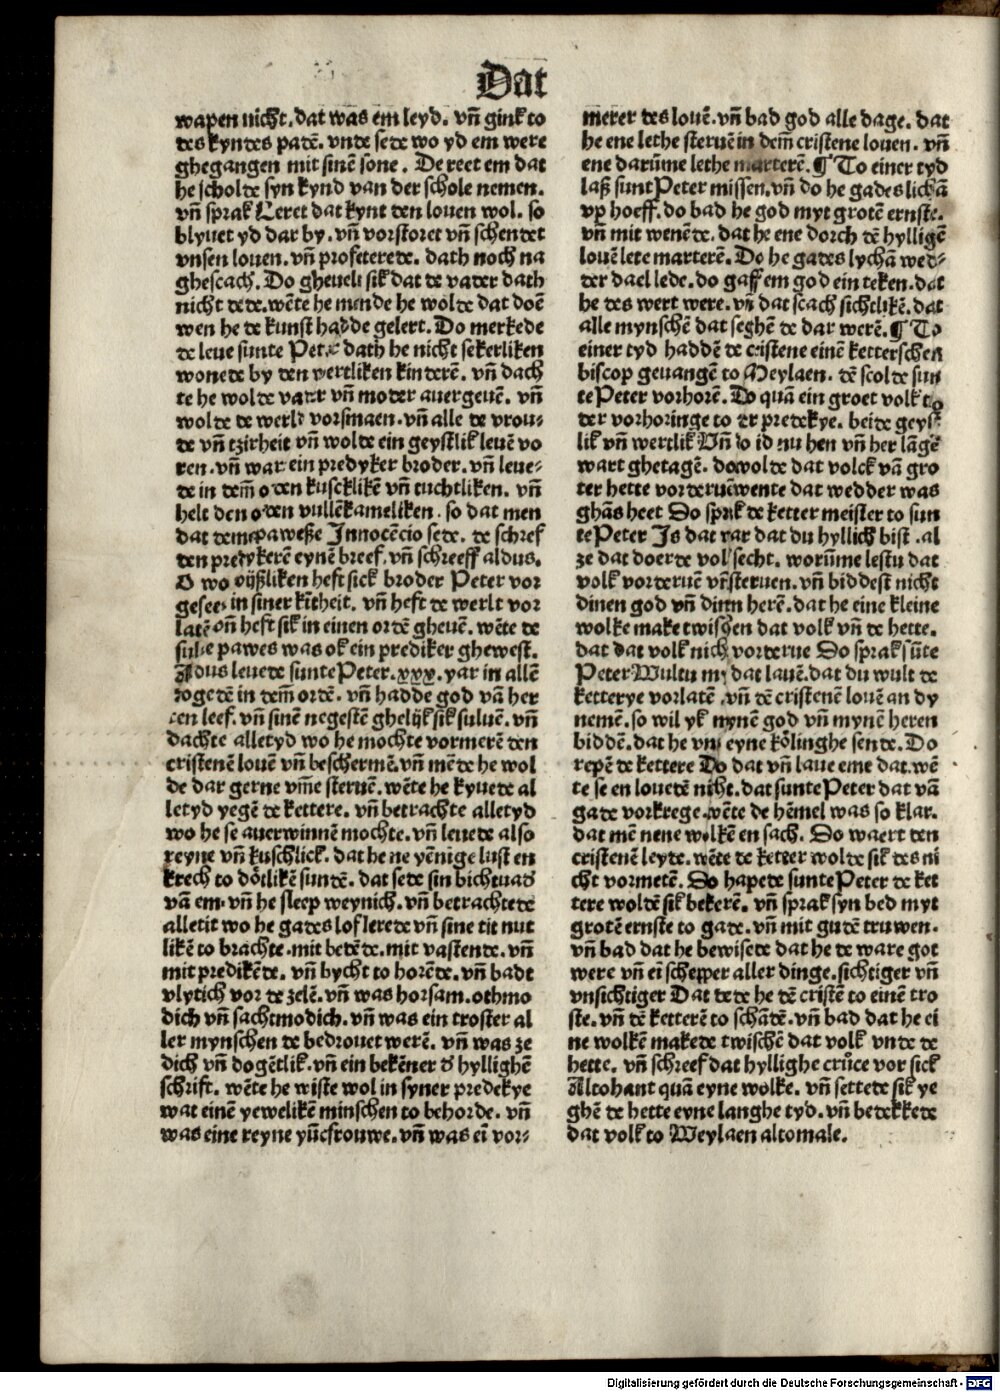 Dat
wapen nicht. dat was em leyd. vñ gink to
des kyndes padē. vnde sede wo yd em were
ghegangen mit sinē sone. De reet em dat
he scholde syn kynd van der schole nemen.
vñ sprak Leret dat kynt den louen wol. so
blyuet yd dar by. vñ vorstoret vñ schendet
vnsen louen. vñ profeterede. dath noch na
ghescach. Do gheuel sik dat de vader dath
nicht dede. wēte he mende he wolde dat doē
wen he de kunst hadde gelert. Do merkede
de leue sunte Peter dath he nicht sekerliken
wonede by den wertliken kinderē. vñ dach
te he wolde vater vñ moder auergeuē. vñ
wolde de werlt vorsmaen. vñ alle de vrou-
de vñ tzirheit vñ wolde ein geystlik leuē vo
ren. vñ wart ein predyker broder. vñ leue-
de in dem̄ orden kusckliken vñ tuchtliken. vñ
helt den orden vullēkameliken. so dat men
dat dem paweße Innocēcio sede. de schref
den predykerē eynē breef. vñ schreeff aldus.
O wo wyßliken heft sick broder Peter vor
geseen in siner kītheit. vñ heft de werlt vor
latē vñ heft sik in einen ordē gheuē. wēte de
sulue pawes was ok ein prediker ghewest.
Aldus leuede sunte Peter. xxx. yar in allē
dogedē in dem̄ ordē. vñ hadde god vā her
ten leef. vñ sinē negestē ghelijk sik suluē. vñ
dachte alletyd wo he mochte vormerē den
cristenē louē vñ beschermē. vñ mēde he wol
de dar gerne vm̄e steruē. wēte he kyuede al
letyd yegē de kettere. vñ betrachte alletyd
wo he se auerwinnē mochte. vñ leuede also
reyne vñ kuschlick. dat he ne yēnige lust en
krech to dötlikē sundē. dat sede sin bichtuad
vā em. vñ he sleep weynich. vñ betrachtede
alletit wo he gades lof lerede vñ sine tit nut
likē to brachte. mit bedēde. mit vastende. vñ
mit predikēde. vñ bycht to horēde. vñ badt
vlytich vor de zelē. vñ was horsam. othmo
dich vñ sachtmodich. vñ was ein troster al
ler mynschen de bedrouet werē. vñ was ze
dich vñ dogētlik. vñ ein bekēner ď hyllighē
schrift. wēte he wiste wol in syner predekye
wat einē yewelikē minschen to behorde. vñ
was eine reyne yūcfrouwe. vñ was eī vor-
merer des louē. vñ bad god alle dage. dat
he ene lethe steruē in dem̄ cristene louen. vñ
ene darūme lethe marterē. ¶ To einer tyd
laß sunt Peter missen. vñ do he gades lichā
vp hoeff. do bad he god myt grotē ernste.
vñ mit wenēde. dat he ene dorch dē hylligē
louē lete marterē. Do he gades lychā wed-
der dael lede. do gaff em god ein teken. dat
he des wert were. vñ dat scach sichtlikē. dat
alle mynschē dat seghē de dar werē. ¶ To
einer tyd haddē de cristene einē ketterschen
biscop geuangē to Meylaen. dē scolde sun
te Peter vorhorē. Do quā ein groet volk to
der vorhoringe to er predekye. beide geyst
lik vñ wertlik Vñ do id nu hen vñ her lāge
wart ghetagē. do wolde dat volck vā gro
ter hette vorderuē wente dat wedder was
ghās heet Do sprak de ketter meister to sun
te Peter Is dat war dat du hyllich bist. al
ze dat doerde volk secht. worūme lestu dat
volk vorderuē vñ steruen. vñ biddest nicht
dinen god vñ dinn herē. dat he eine kleine
wolke make twischen dat volk vñ de hette.
dat dat volk nich vorderue Do sprak sūte
Peter Wultu my dat lauē. dat du wult de
ketterye vorlatē. vñ dē cristenē louē an dy
nemē. so wil yk mynē god vñ mynē heren
biddē. dat he vns eyne kölinghe sende. Do
repē de kettere Do dat vñ laue eme dat. wē
te se en louedē niht. dat sunte Peter dat vā
gade vorkrege. wēte de hēmel was so klar.
dat mē nene wolkē en sach. Do waert den
cristenē leyde. wēte de ketter wolde sik des ni
cht vormetē. Do hapede sunte Peter de ket
tere woldē sik bekerē. vñ sprak syn bed myt
grotē ernste to gade. vñ mit gudē truwen.
vñ bad dat he bewisede dat he de ware got
were vñ eī schepper aller dinge. sichtiger vñ
vnsichtiger Dat dede he dē cristē to einē tro
ste. vñ dē ketterē to schādē. vñ bad dat he ei
ne wolkē makede twischē dat volk vnde de
hette. vñ schreef dat hyllighe crůce vor sick
Altohant quā eyne wolke. vñ settede sik ye
ghē de hette eyne langhe tyd. vñ bedekkede
dat volk to Meylaen altomale.
Digitalisierung gefördert durch die Deutsche Forschungsgemeinschaft - DFG